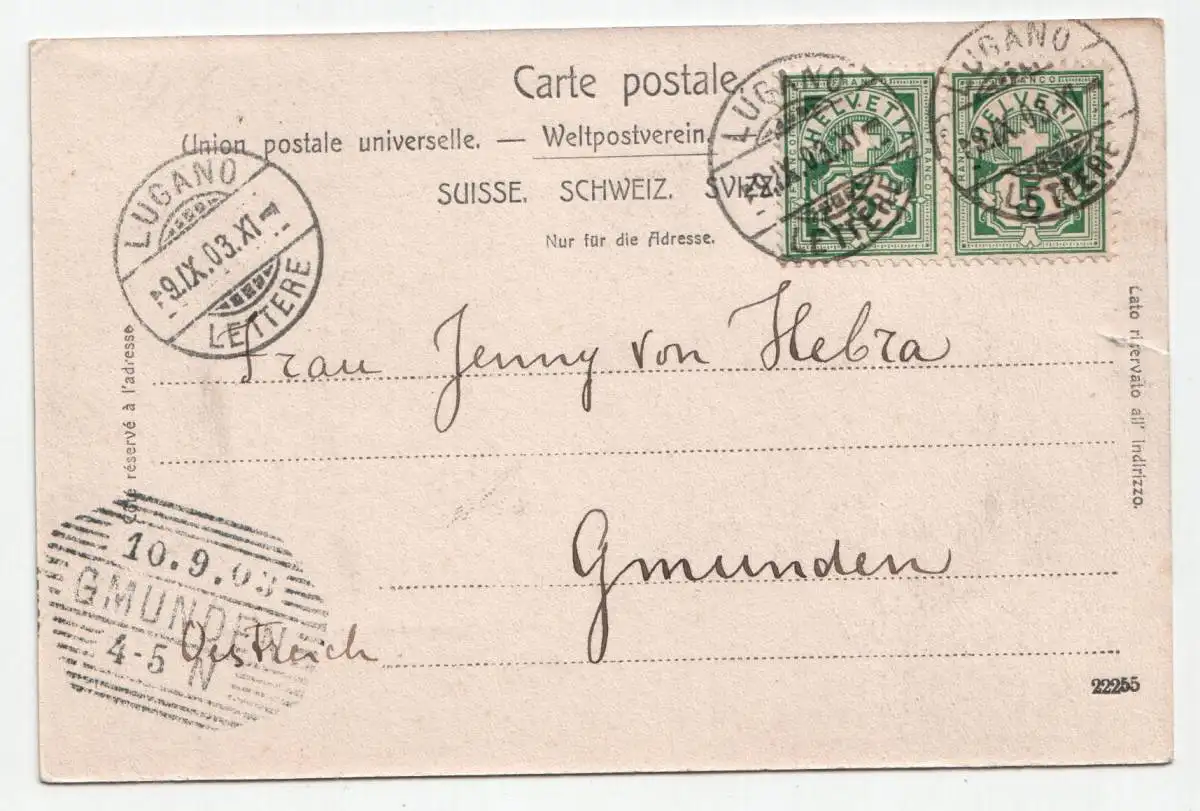 Carte postale.
Union postale universelle. — Weltpostverein.
SUISSE. SCHWEIZ. SVIZZ
Nur für die Adresse.
FRANCO
HELVETIA
FRANCO
FRANCO
5
FRANCO
HELVETIA
FRANCO
5
LUGANO
9.IX.03.XI
LETTERE
LUGANO
9.IX.03
LETTERE
LUGANO
9.IX.03.XI
LETTERE
Frau Jenny von Hebra
Gmunden
Oestreich
Côté réservé à l'adresse
Lato riservato all' indirizzo.
10.9.03
GMUNDEN
4-5 N
22255